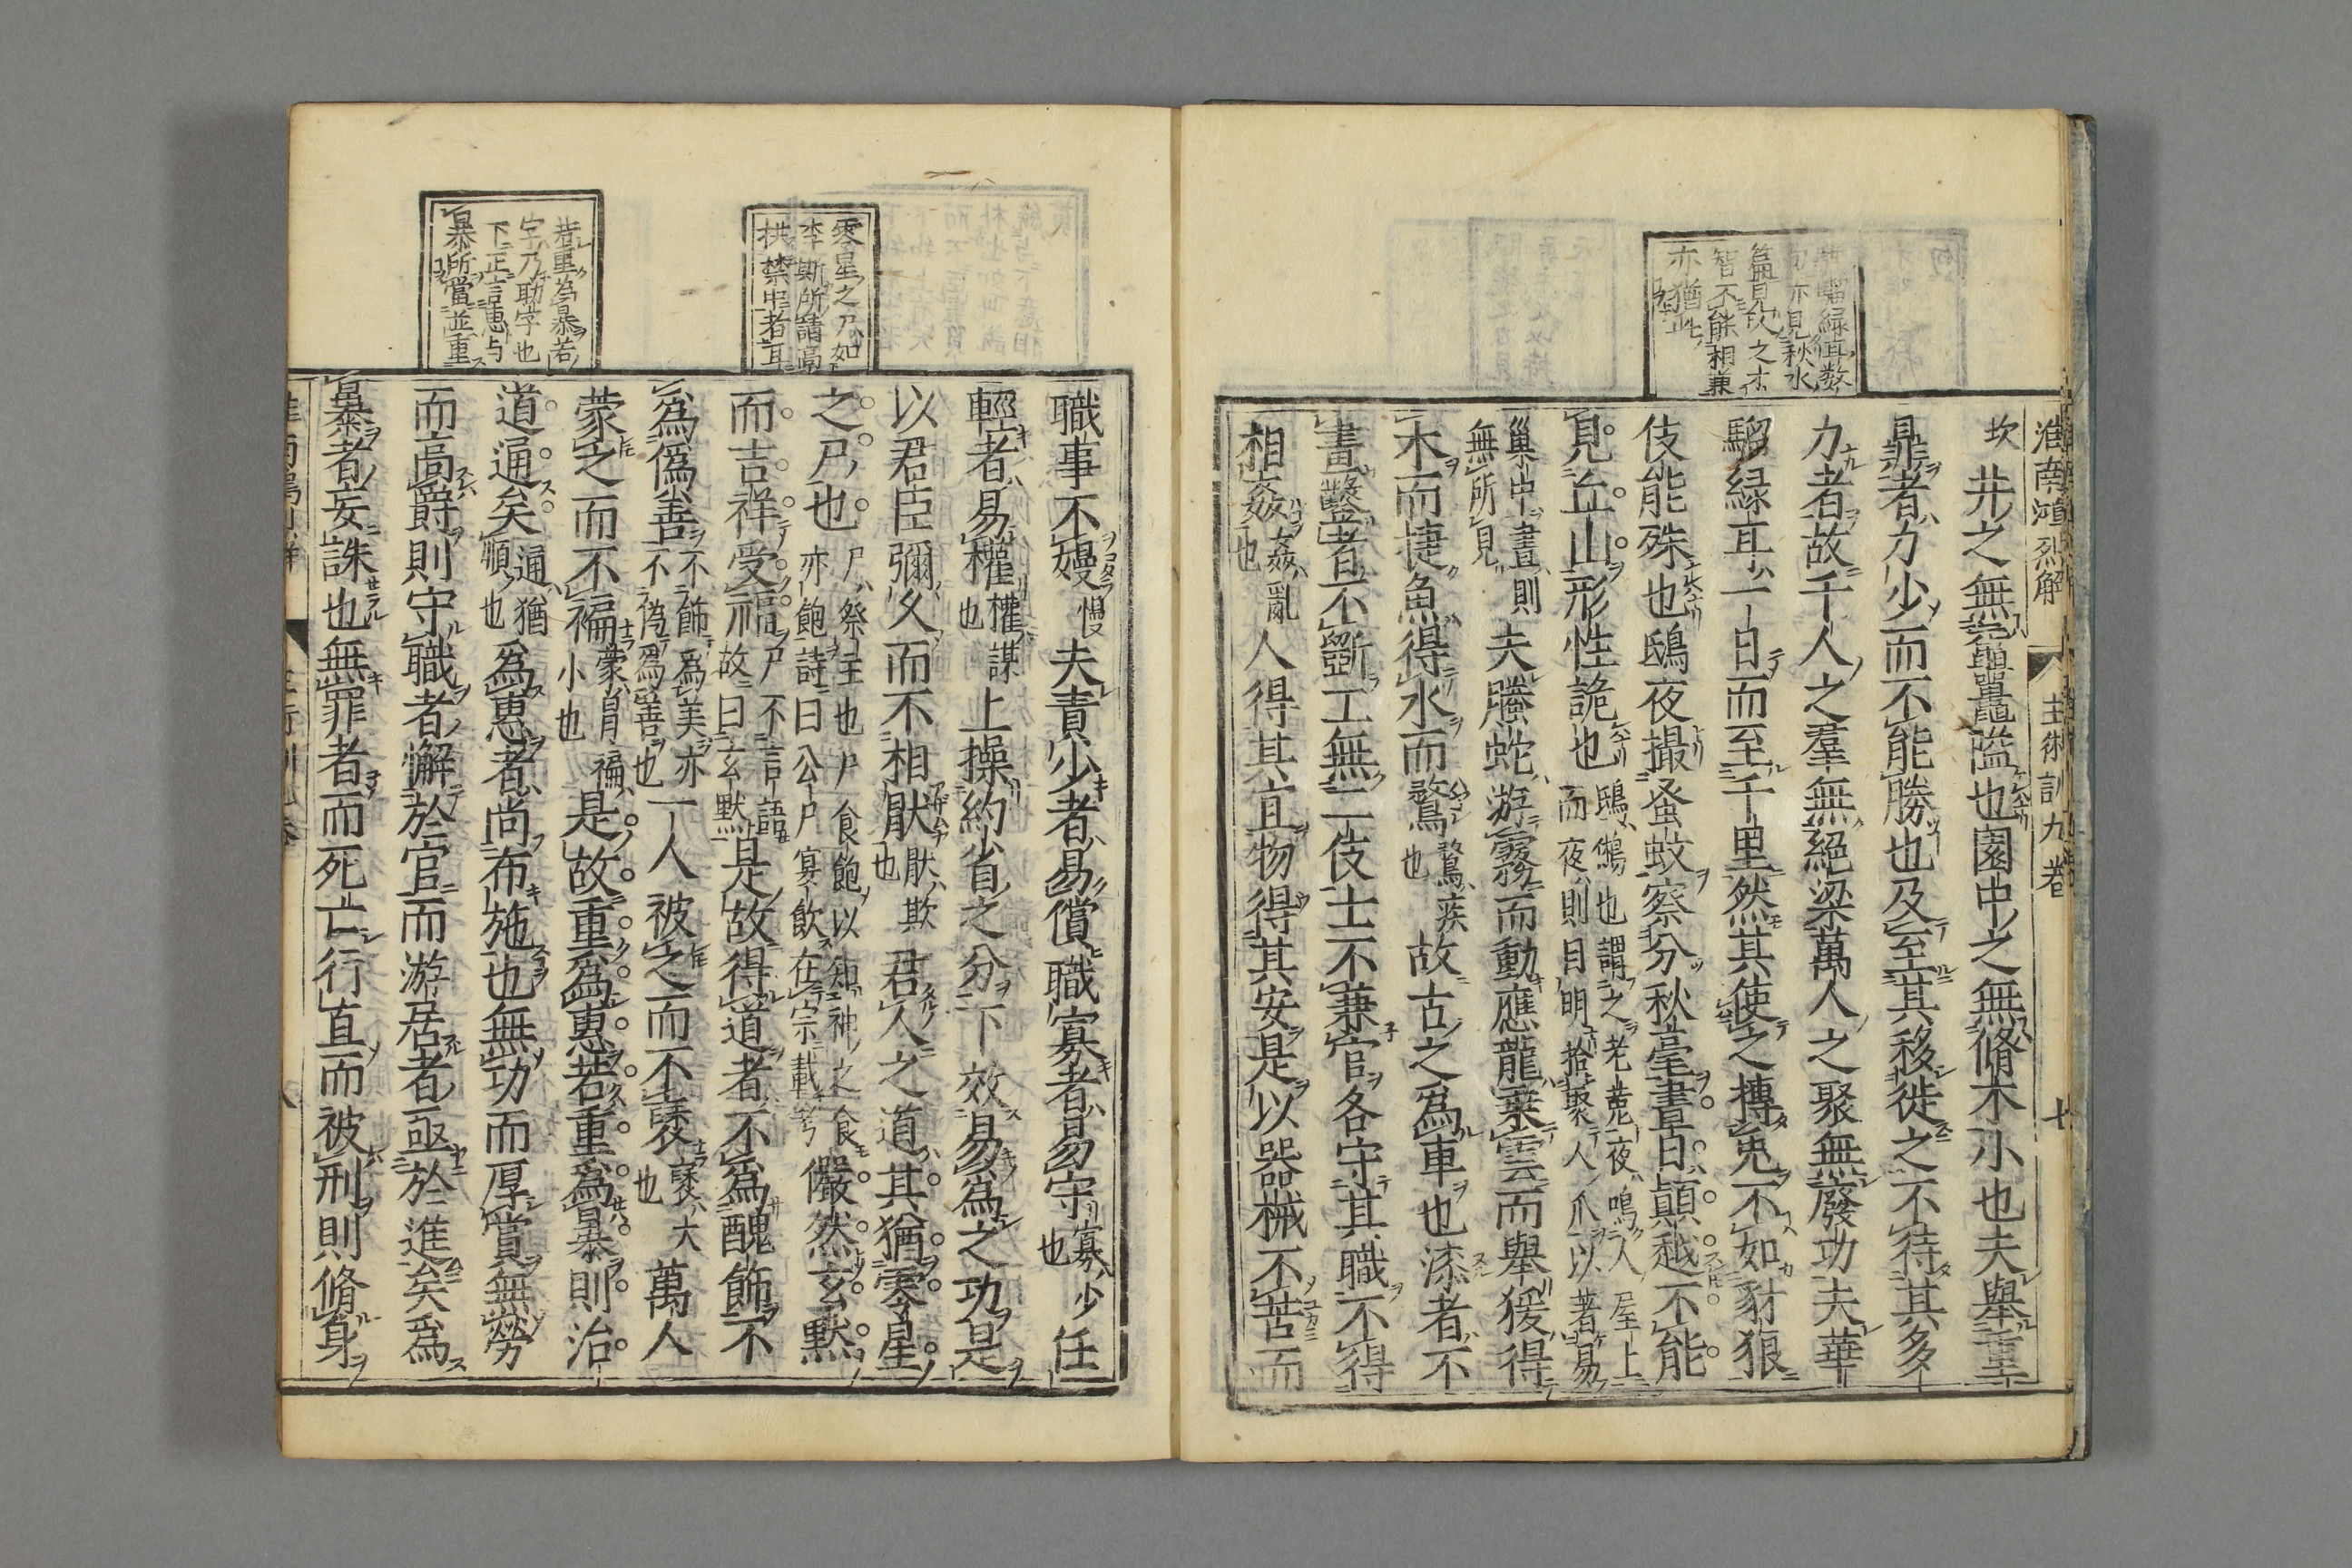 淮南鴻烈解
主術訓九卷
七
坎井之無黿鼉隘也園中之無脩木小也夫舉重
鼎者力少而不能勝也及至其移徙之不待其多
力者故千人之羣無絕梁萬人之聚無廢功夫華
騮綠耳一日而至千里然其使之搏兔不如豺狼
伎能殊也鴟夜撮蚤蚊察分秋毫晝日顛越不能
見丘山形性詭也
鴟鵂也謂之老菟夜鳴人屋上
而夜則目明拾聚人爪以著易
巢中晝則
無所見
夫螣蛇游霧而動應龍乘雲而舉猨得
木而捷魚得水而鶩
鶩疾
也
故古之為車也漆者不
畫鑿者不斲工無二伎士不兼官各守其職不得
相姦
姦亂
也
人得其宜物得其安是以器械不苦而
亦見秋水
篇見伎之才
智不能相兼
亦猶此
職事不嫚
慢
夫責少者易償職寡者易守
寡少
也
任
輕者易權
權謀
也
上操約省之分下效易為之功是
以君臣彌久而不相猒
猒欺
也
君人之道其猶零星
之尸也
尸祭主也尸食飽以知神之食
亦飽詩曰公尸宴飲在宗載考
儼然玄默
而吉祥受福
尸不言語
故曰玄默
是故得道者不為醜飾不
為僞善
不飾為美亦
不偽為善也
一人被之而不褒
褒大
也
萬人
蒙之而不褊
蒙冒褊
小也
是故重為惠若重為暴則治
道通矣
通猶
順也
為惠者尚布施也無功而厚賞無勞
而高爵則守職者懈於官而游居者亟於進矣為
暴者妄誅也無罪者而死亡行直而被刑則脩身
零星之尸如
李斯所請高
拱禁中者耳
昔重為暴若
字乃助字也
下正言惠与
暴所當並重